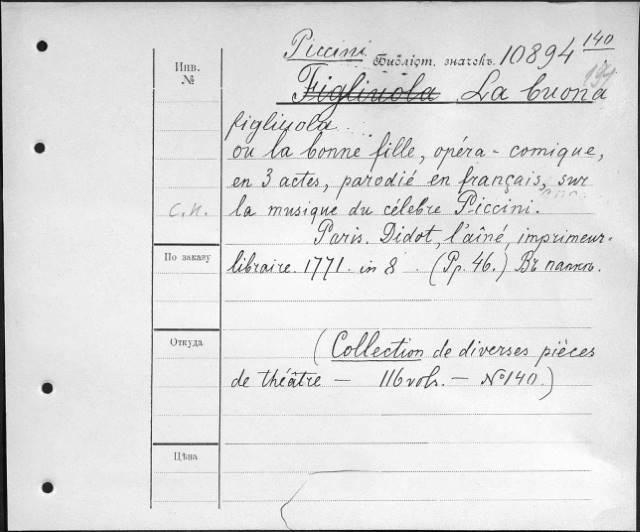 Piccini
Библіот. значокъ. 10894 140
194
Инв.
№
Figliuola La buona
figliuola
ou la bonne fille, opéra-comique,
en 3 actes, parodié en français, sur
С.К. la musique du célebre Piccini.
Paris. Didot, l'aîné, imprimeur-
По заказу
libraire. 1771. in 8. (Pp. 46.) Въ папкѣ.
Откуда
(Collection de diverses pièces
de théâtre — 116 vols. — № 140.)
Цѣна